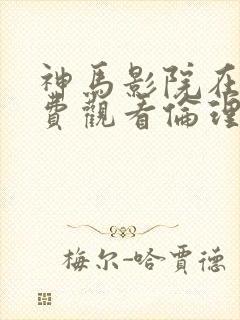 神馬影院在
費觀看倫理
梅尔-哈賈德